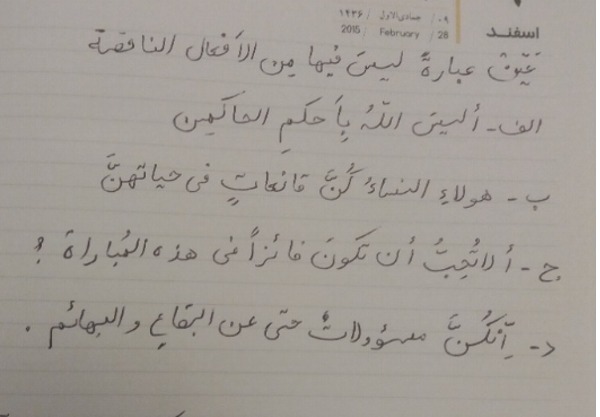 اسفند
۰۹ / جمادی‌الاول / ۱۴۳۶
28 / February / 2015
عَيِّنْ عبارةً ليسَ فيها مِن الأفعال الناقصة
الف- أليسَ اللّهُ بِأَحكمِ الحاكمين
ب- هولاءِ النساءُ كُنَّ قانعاتٍ فى حياتهنَّ
ج- ألا تُحِبُّ أن تكونَ فائزاً فى هذه المُباراة ؟
د- إنّكُنَّ مسؤولاتٌ حتى عن البقاعِ و البهائم .